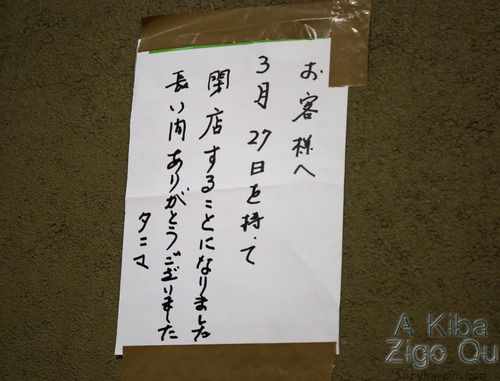 お客様へ
3月27日を持って
閉店することになりました
長い間ありがとうございました
タニマ
A Kiba
Zigo Qu